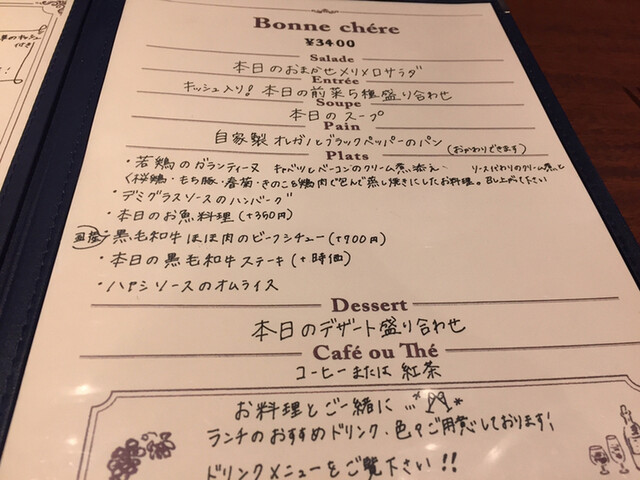 Bonne chére
¥3400
Salade
本日のおまかせメリメロサラダ
Entrée
キッシュ入り！本日の前菜5種盛り合わせ
Soupe
本日のスープ
Pain
自家製 オレガノとブラックペッパーのパン (おかわりできます)
Plats
・若鶏のガランティーヌ キャベツとベーコンのクリーム煮添え ソース代わりのクリーム煮と
桜鶏・もち豚・春菊・きのこを鶏肉で包んで蒸し焼きにしたお料理。召し上がって下さい
・デミグラスソースのハンバーグ
・本日のお魚料理 (+360円)
・黒毛和牛ほほ肉のビーフシチュー (+900円)
・本日の黒毛和牛ステーキ (+時価)
・ハヤシソースのオムライス
Dessert
本日のデザート盛り合わせ
Café ou Thé
コーヒーまたは 紅茶
お料理とご一緒に…
ランチのおすすめドリンク、色々ご用意しております！
ドリンクメニューをご覧下さい!!